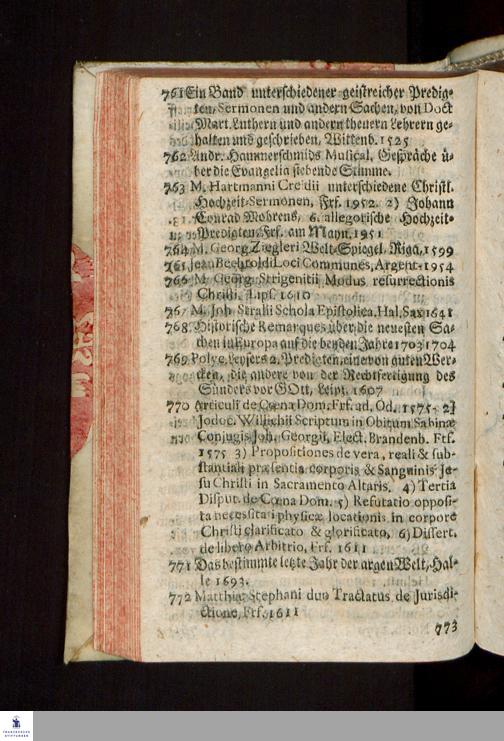 761 Ein Band unterschiedener geistreicher Predig-
ten, Sermonen und andern Sachen, von Doct
Mart. Luthern und andern theuern Lehrern ge-
halten und geschrieben, Wittenb. 1525
762 Andr. Hammerschmids Musical. Gespräche ü-
ber die Evangelia siebende Stimme.
763 M. Hartmanni Creidii unterschiedene Christl.
Hochzeit-Sermonen, Frf. 1952. 2) Johann
Conrad Mohrens, 6. allegorische Hochzeit-
Predigten, Frf. am Mayn. 1951
764 M. Georg Ziegleri Welt-Spiegel, Riga, 1599
761 Jean Bechtoldi Loci Communes, Argent. 1954
766 M. Georg Strigenitii Modus resurrectionis
Christi, Lips. 1610
767 M. Joh Stralii Schola Epistolica, Hal. Sax 1641
768 Historische Remarques über die neuesten Sa-
chen in Europa auf die beyden Jahre 1703 1704
769 Polyc. Leysers 2. Predigten, eine von guten Wer-
cken, die andere von der Rechtfertigung des
Sünders vor GOtt, Leipz. 1607
770 Articuli de Cœna Dom. Frf. ad. Od. 1575. 2)
Jodoc. Willichii Scriptum in Obitum Sabinæ
Conjugis Joh. Georgii, Elect. Brandenb. Frf.
1575 3) Propositiones de vera, reali & sub-
stantiali præsentia corporis & Sanguinis Je-
su Christi in Sacramento Altaris. 4) Tertia
Disput. de Cœna Dom. 5) Refutatio opposi-
ta necessitati physicæ locationis in corpore
Christi clarificato & glorificato, 6) Dissert.
de libero Arbitrio, Frf. 1611
771 Das bestimmte letzte Jahr der argen Welt, Hal-
le 1693.
772 Matthiæ Stephani duo Tractatus de Jurisdi-
ctione, Frf. 1611
773
FRANCKESCHE
STIFTUNGEN